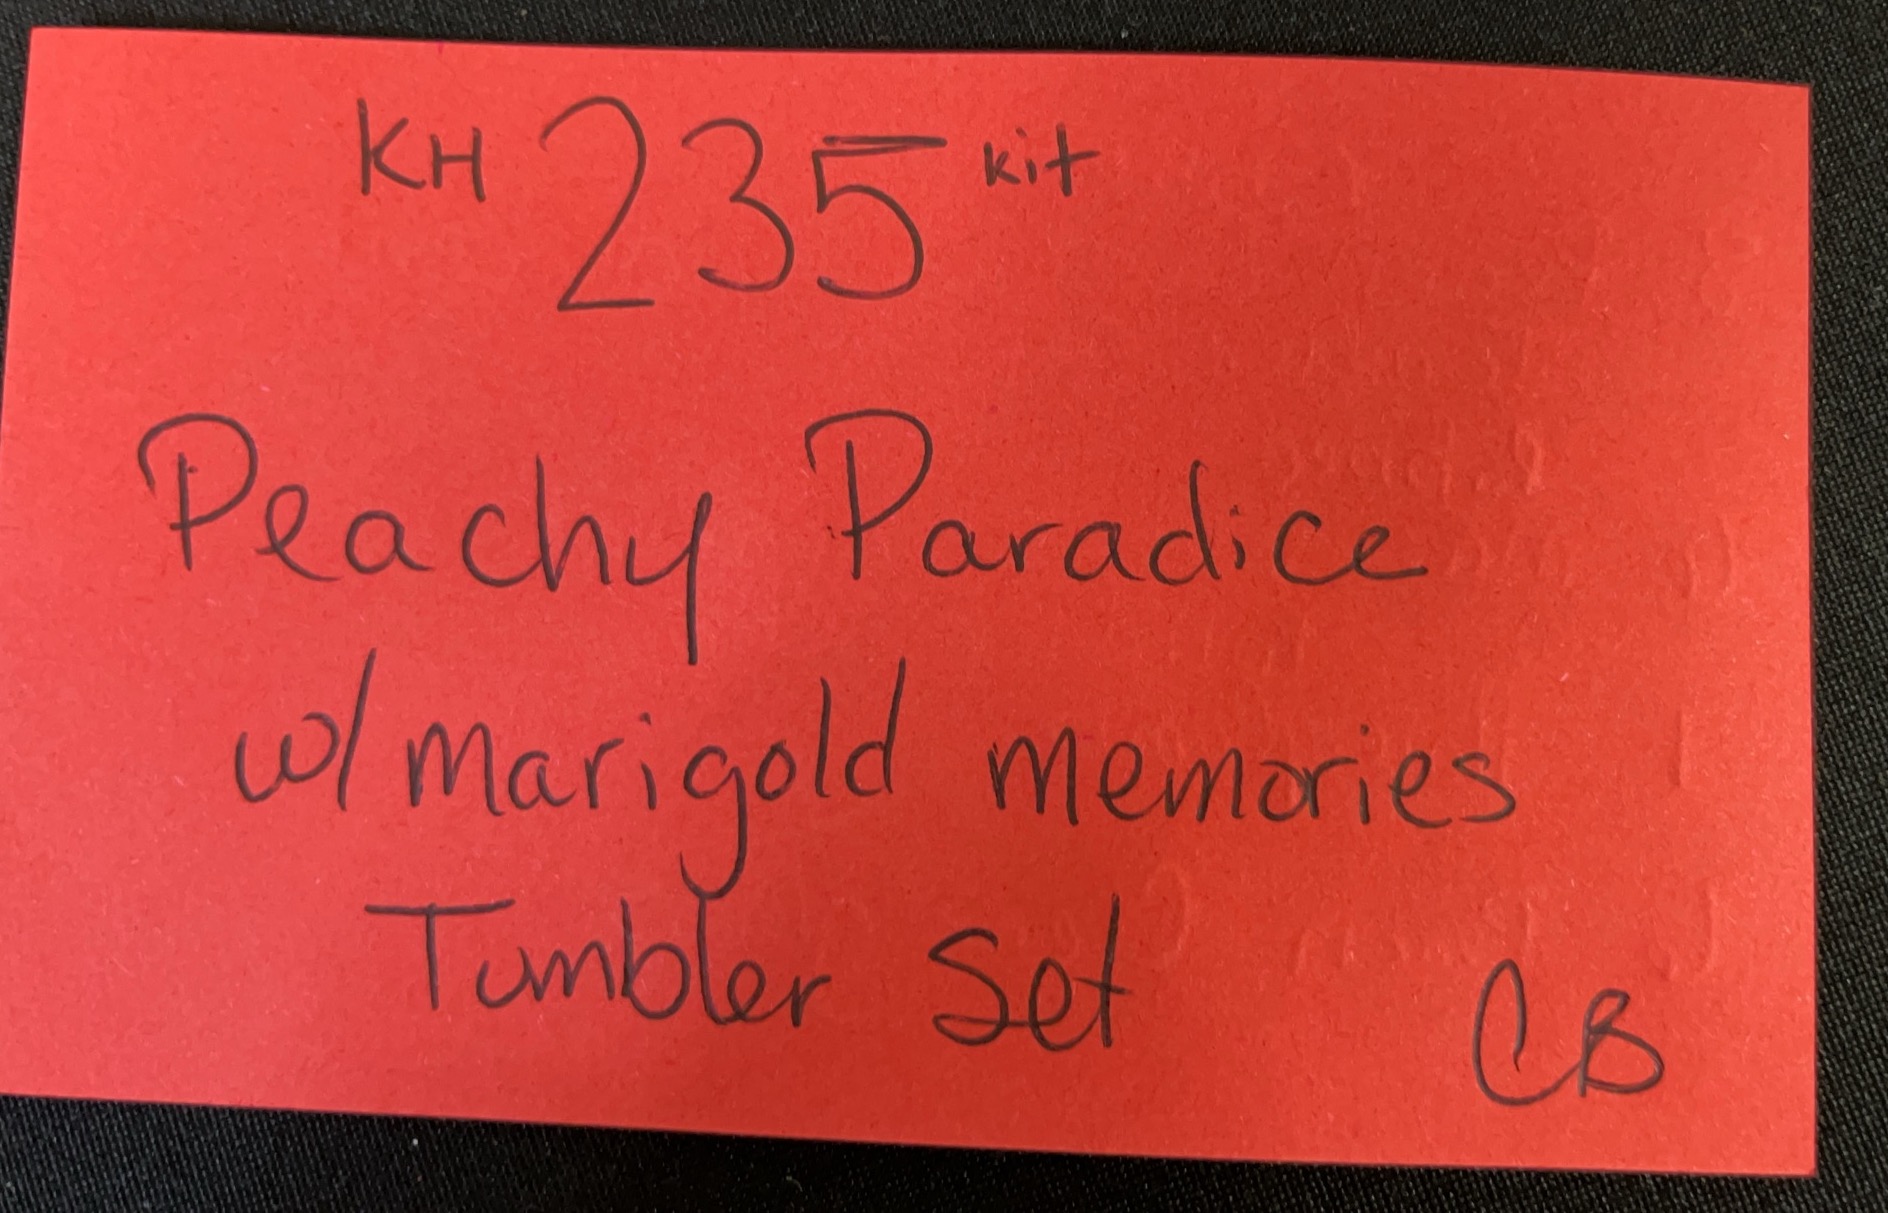 KH 235 Kit
Peachy Paradice
w/ Marigold Memories
Tumbler Set
CB